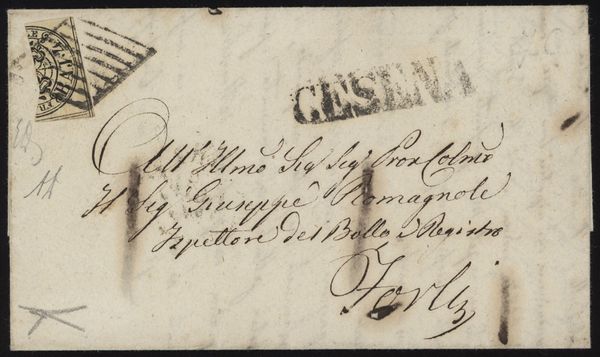 CESENA
All' Illmo Sig Sig Pron Colmo
Il Sig Giuseppe Romagnoli
Ispettore del Bollo e Registro
Forlì